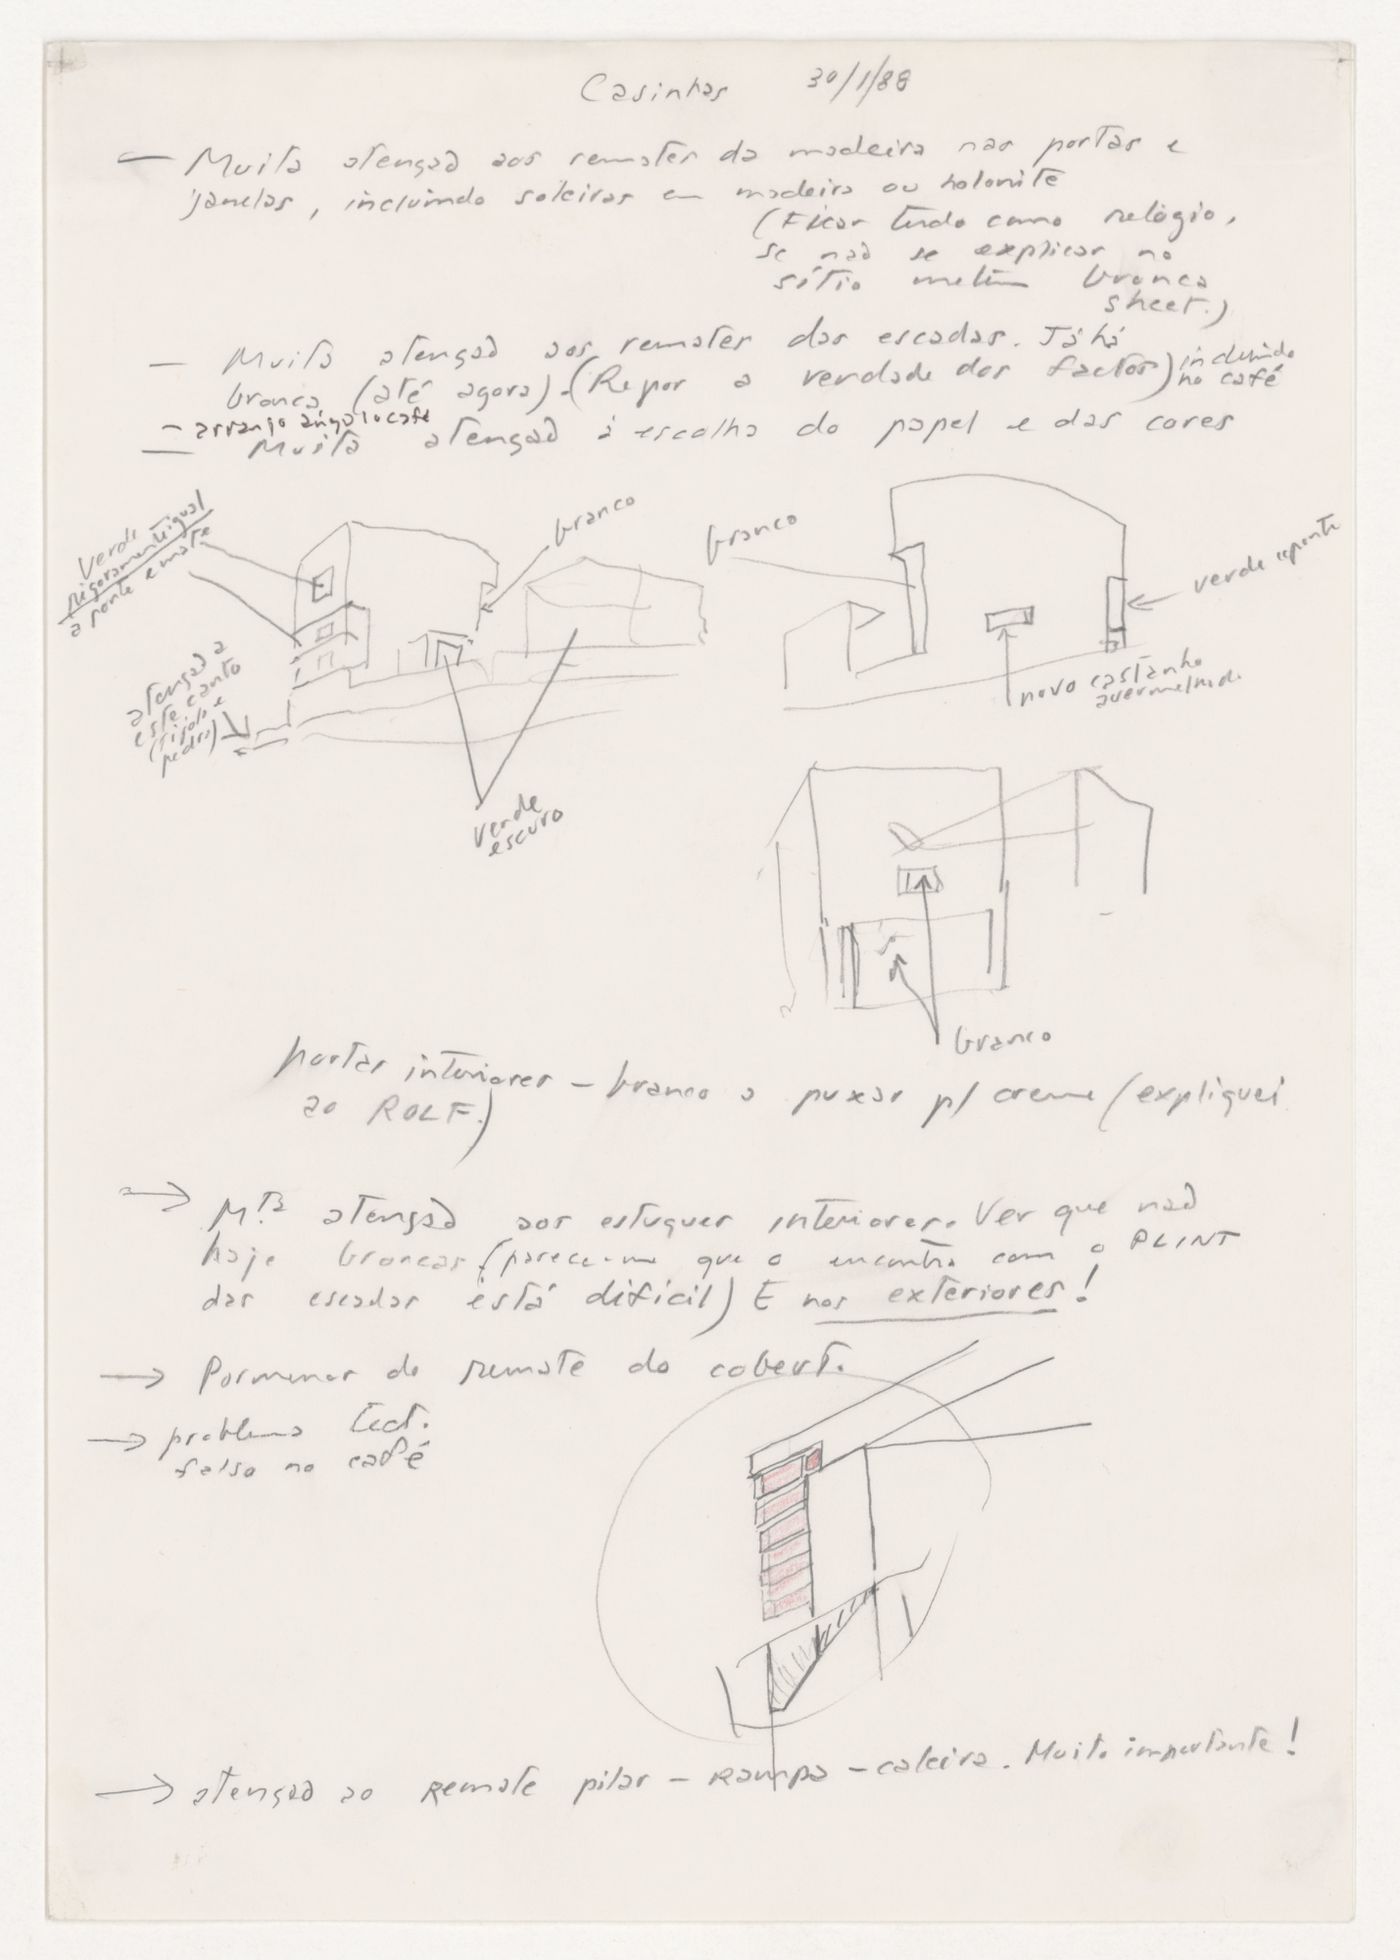 Casinhas 30/1/88
— Muita atenção aos remates da madeira nas portas e
janelas, incluindo soleiras em madeira ou holonite
(Ficar tudo como relógio,
se não se explicar no
sítio metem bronca
sheet.)
— Muita atenção aos remates das escadas. Já há
bronca (até agora). (Repor a verdade dos factos) incluindo
no café
— arranjo ang
— Muita atenção à escolha do papel e das cores
Verde
rigoramente igual
à ponte e mate
branco
branco
verde
ponte
novo castanho
avermelhado
atenção a
este canto
(tijolo e
pedra)
Verde
escuro
branco
portas interiores — branco a puxar p/ creme (expliquei
ao ROLF.)
→ M.ta atenção aos estuques interiores. Ver que não
haja broncas (parece-me que o encontro com o PLINT
das escadas está difícil) E nos exteriores!
→ Pormenor do remate do cobert.
→ problema tect.
falso no café
→ atenção ao Remate pilar — Rampa — caleira. Muito importante!